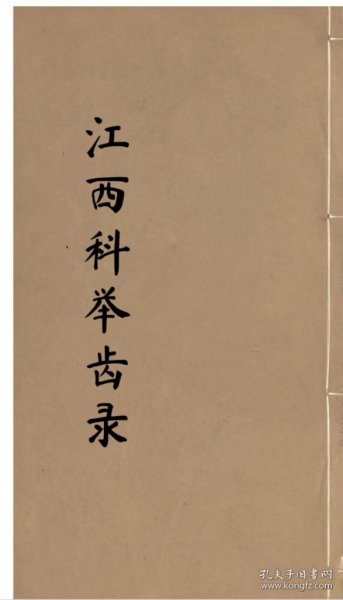 江西科举齿录
孔夫子旧书网
www.kongfz.com